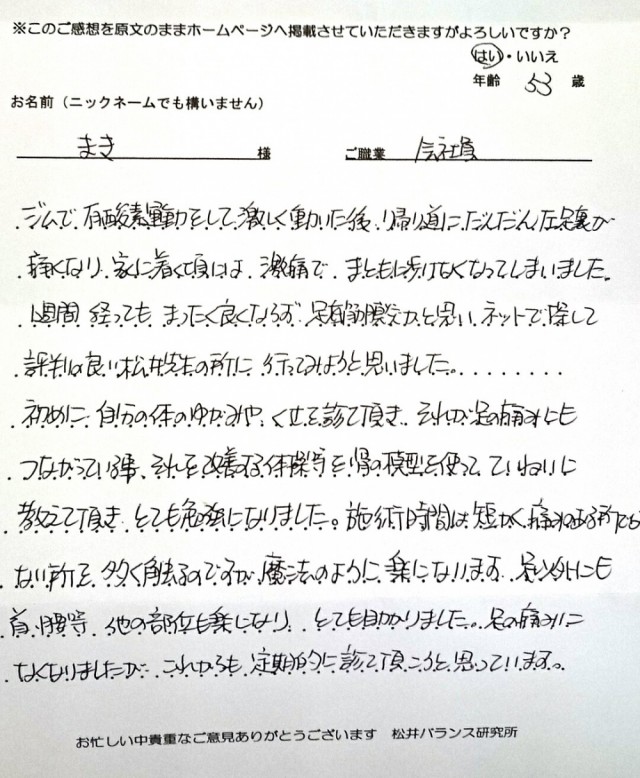 ※このご感想を原文のままホームページへ掲載させていただきますがよろしいですか？
はい・いいえ
年齢 53 歳
お名前（ニックネームでも構いません）
まき 様 ご職業 会社員
ジムで、有酸素運動をして激しく動いた後、帰り道にだんだん左足裏が
痛くなり、家に着く頃には、激痛で、まともに歩けなくなってしまいました。
1週間経っても、まったく良くならず、足底筋膜炎かと思い、ネットで探して
評判の良い松井先生の所に行ってみようと思いました。
初めに、自分の体のゆがみや、くせを診て頂き、それが足の痛みにも
つながっている事、それを改善する体操等を骨の模型を使って、ていねいに
教えて頂き、とても勉強になりました。施術時間は短かく、痛みのある所でも
ない所を、多く触るのですが、魔法のように、楽になります。足以外にも
首、腰等、他の部位も楽になり、とても助かりました。足の痛みは
なくなりましたが、これからも、定期的に診て頂こうと思っています。
お忙しい中貴重なご意見ありがとうございます 松井バランス研究所